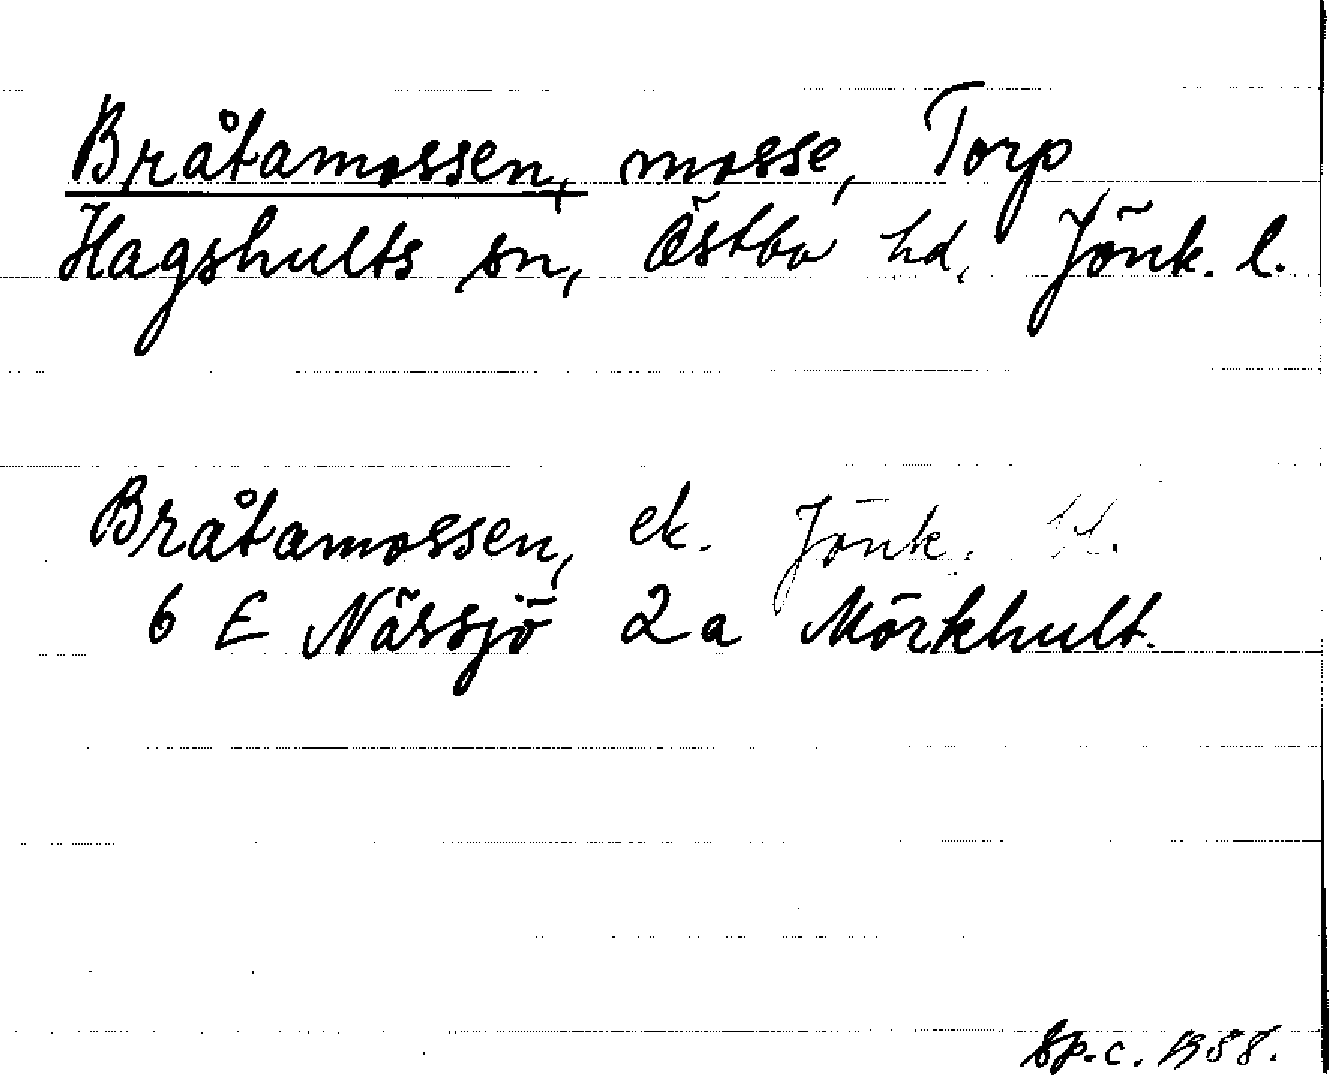 Bråtamossen, mosse, Torp
Hagshults sn, Östbo hd, Jönk. l.
Bråtamossen, ek. Jönk.
6 E Nässjö 2a Mörkhult.
Sp.c. 1988.